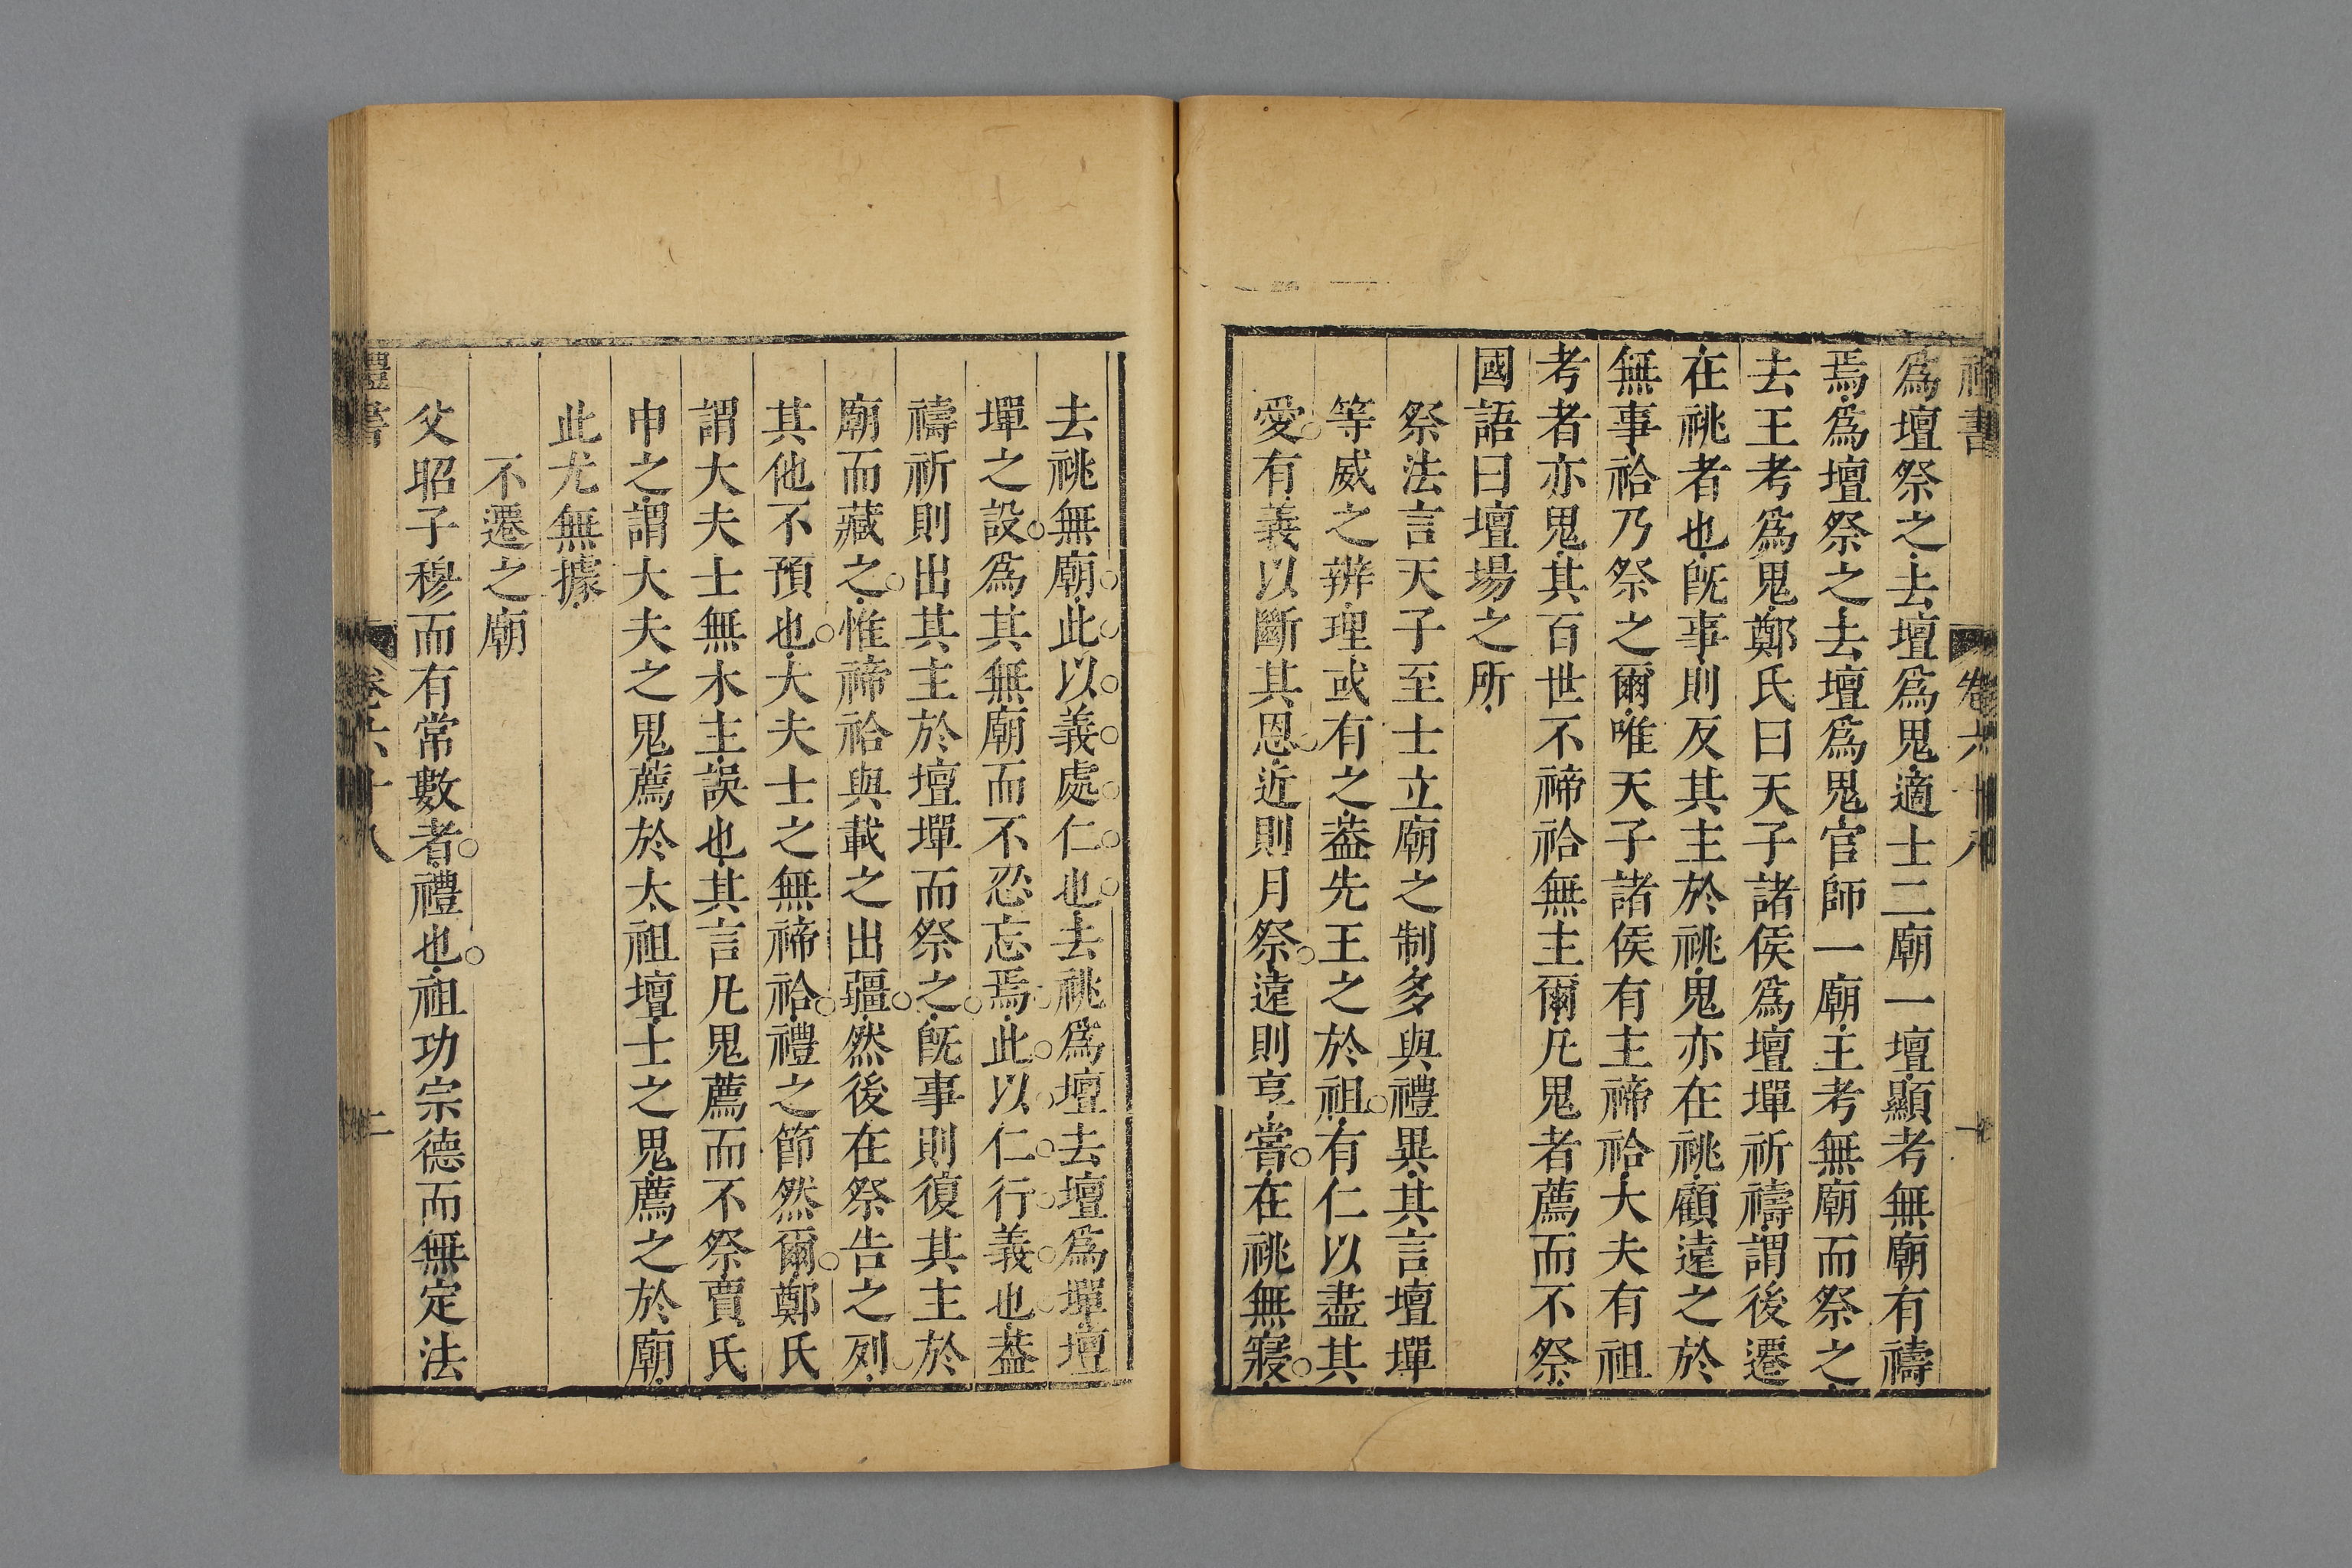 禮書 卷六十八
爲壇祭之去壇爲鬼適士二廟一壇顯考無廟有禱
焉爲壇祭之去壇爲鬼官師一廟王考無廟而祭之
去王考爲鬼鄭氏曰天子諸侯爲壇墠祈禱謂後遷
在祧者也旣事則反其主於祧鬼亦在祧顧遠之於
無事祫乃祭之爾唯天子諸侯有主禘祫大夫有祖
考者亦鬼其百世不禘祫無主爾凡鬼者薦而不祭
國語曰壇場之所
祭法言天子至士立廟之制多與禮異其言壇墠
等威之辨理或有之葢先王之於祖有仁以盡其
愛有義以斷其恩近則月祭遠則享嘗在祧無寢
去祧無廟此以義處仁也去祧爲壇去壇爲墠壇
墠之設爲其無廟而不忍忘焉此以仁行義也葢
禱祈則出其主於壇墠而祭之旣事則復其主於
廟而藏之惟禘祫與載之出疆然後在祭告之列
其他不預也大夫士之無禘祫禮之節然爾鄭氏
謂大夫士無木主誤也其言凡鬼薦而不祭賈氏
申之謂大夫之鬼薦於太祖壇士之鬼薦之於廟
此尤無據
不遷之廟
父昭子穆而有常數者禮也祖功宗德而無定法
禮書 卷六十八 二